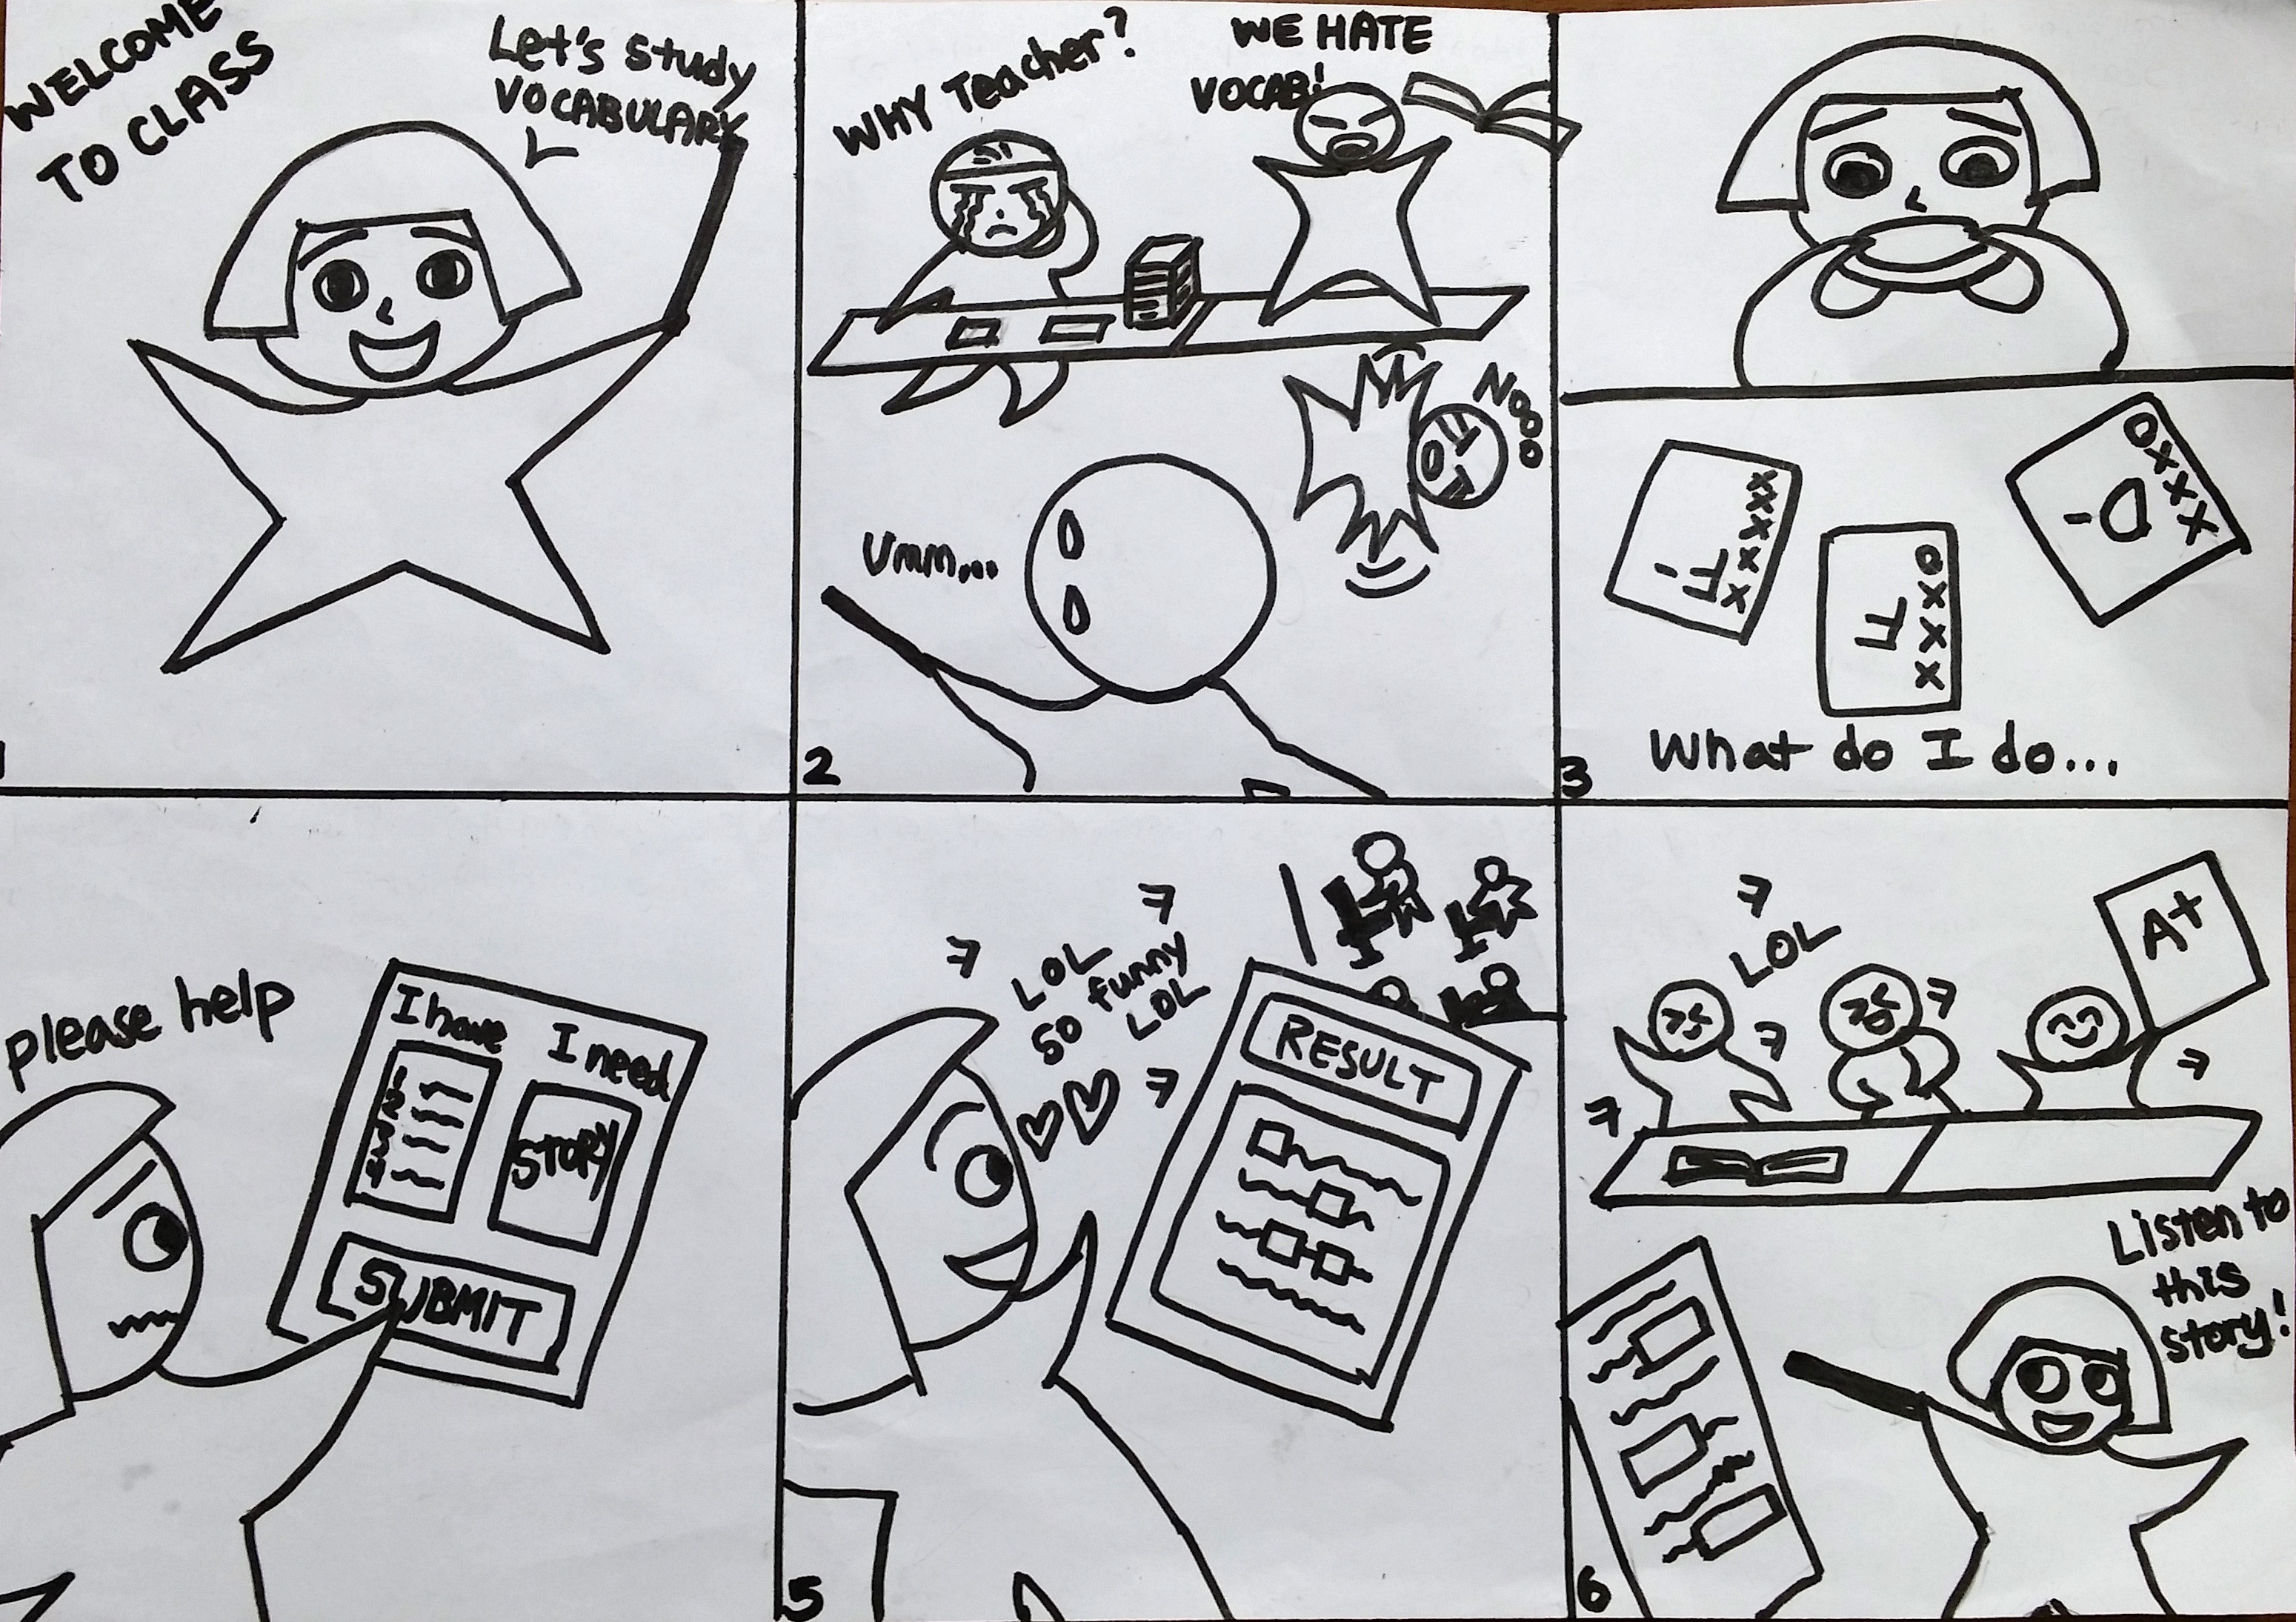 WELCOME
TO CLASS
Let's study
VOCABULARY
1
WHY Teacher?
WE HATE
VOCAB!
Nooo
Umm...
2
xxxxxx
F-
oxxxx
F
oxxxx
D-
What do I do...
3
please help
I have
I need
1
2
3
4
STORY
SUBMIT
LOL
so funny
LOL
RESULT
5
LOL
A+
Listen to
this
story!
6